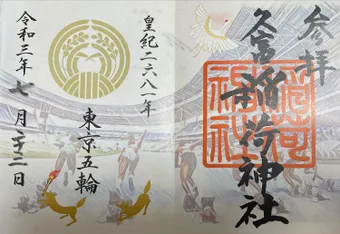 参拝
久富稲荷神社
皇紀二六八一年
東京五輪
令和三年七月二十二日